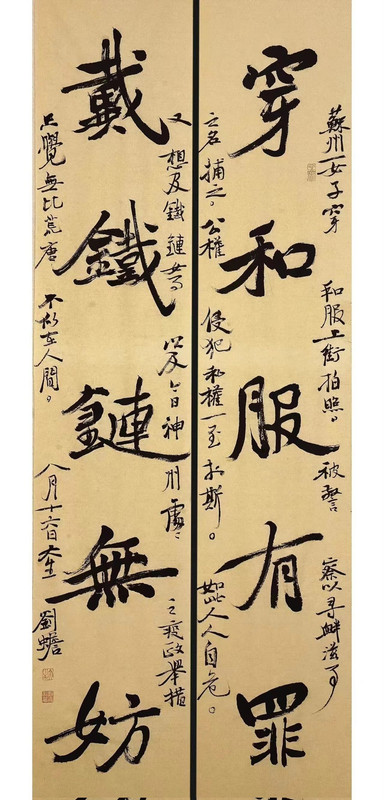 穿和服有罪
蘇州一女子穿和服上街拍照。被警察以尋衅滋事
之名捕之。公權侵犯私權一至於斯。如此人人自危。
戴鐵鏈無妨
又想及鐵鏈女以及今日神州處處之疫政舉措
只覺無比荒唐不似在人間。八月十六日 劉蟾